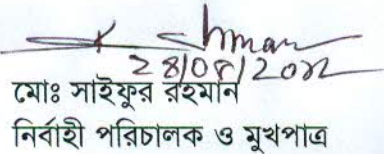 28/08/2022
মোঃ সাইফুর রহমান
নির্বাহী পরিচালক ও মুখপাত্র